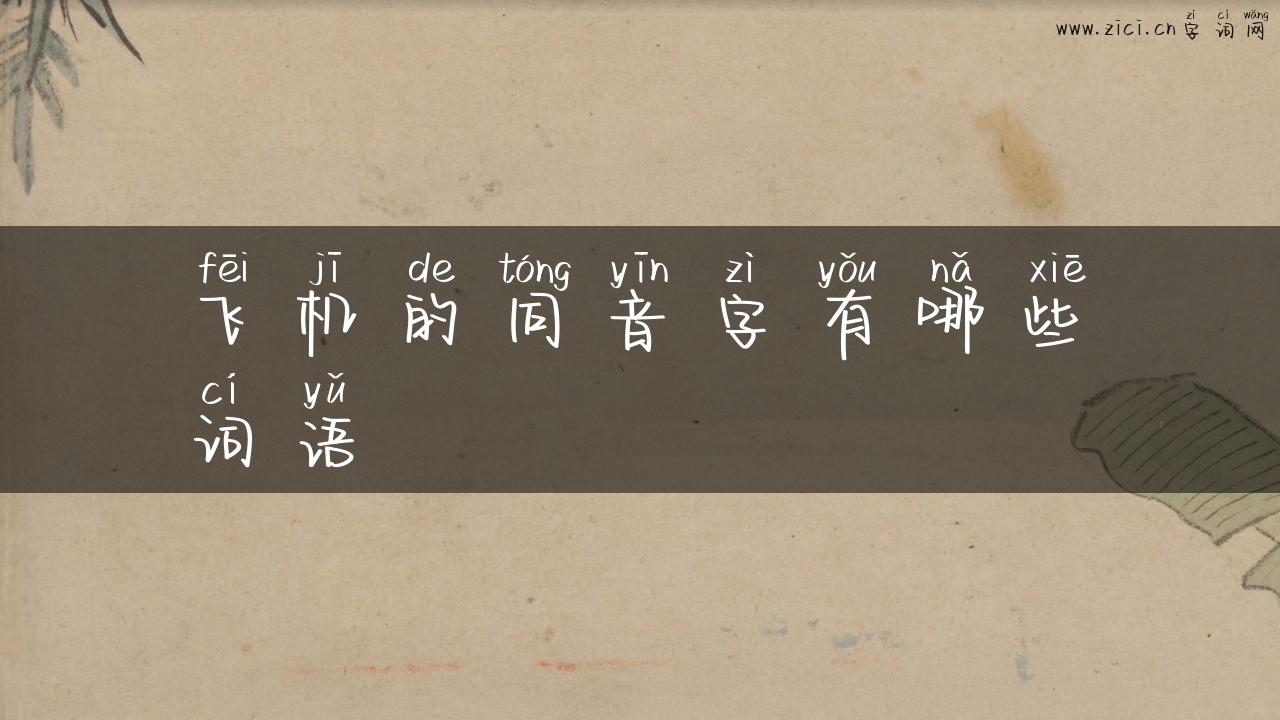 zì cí wǎng
www.zici.cn 字词网
fēi jī de tóng yīn zì yǒu nǎ xiē
飞机的同音字有哪些
cí yǔ
词语